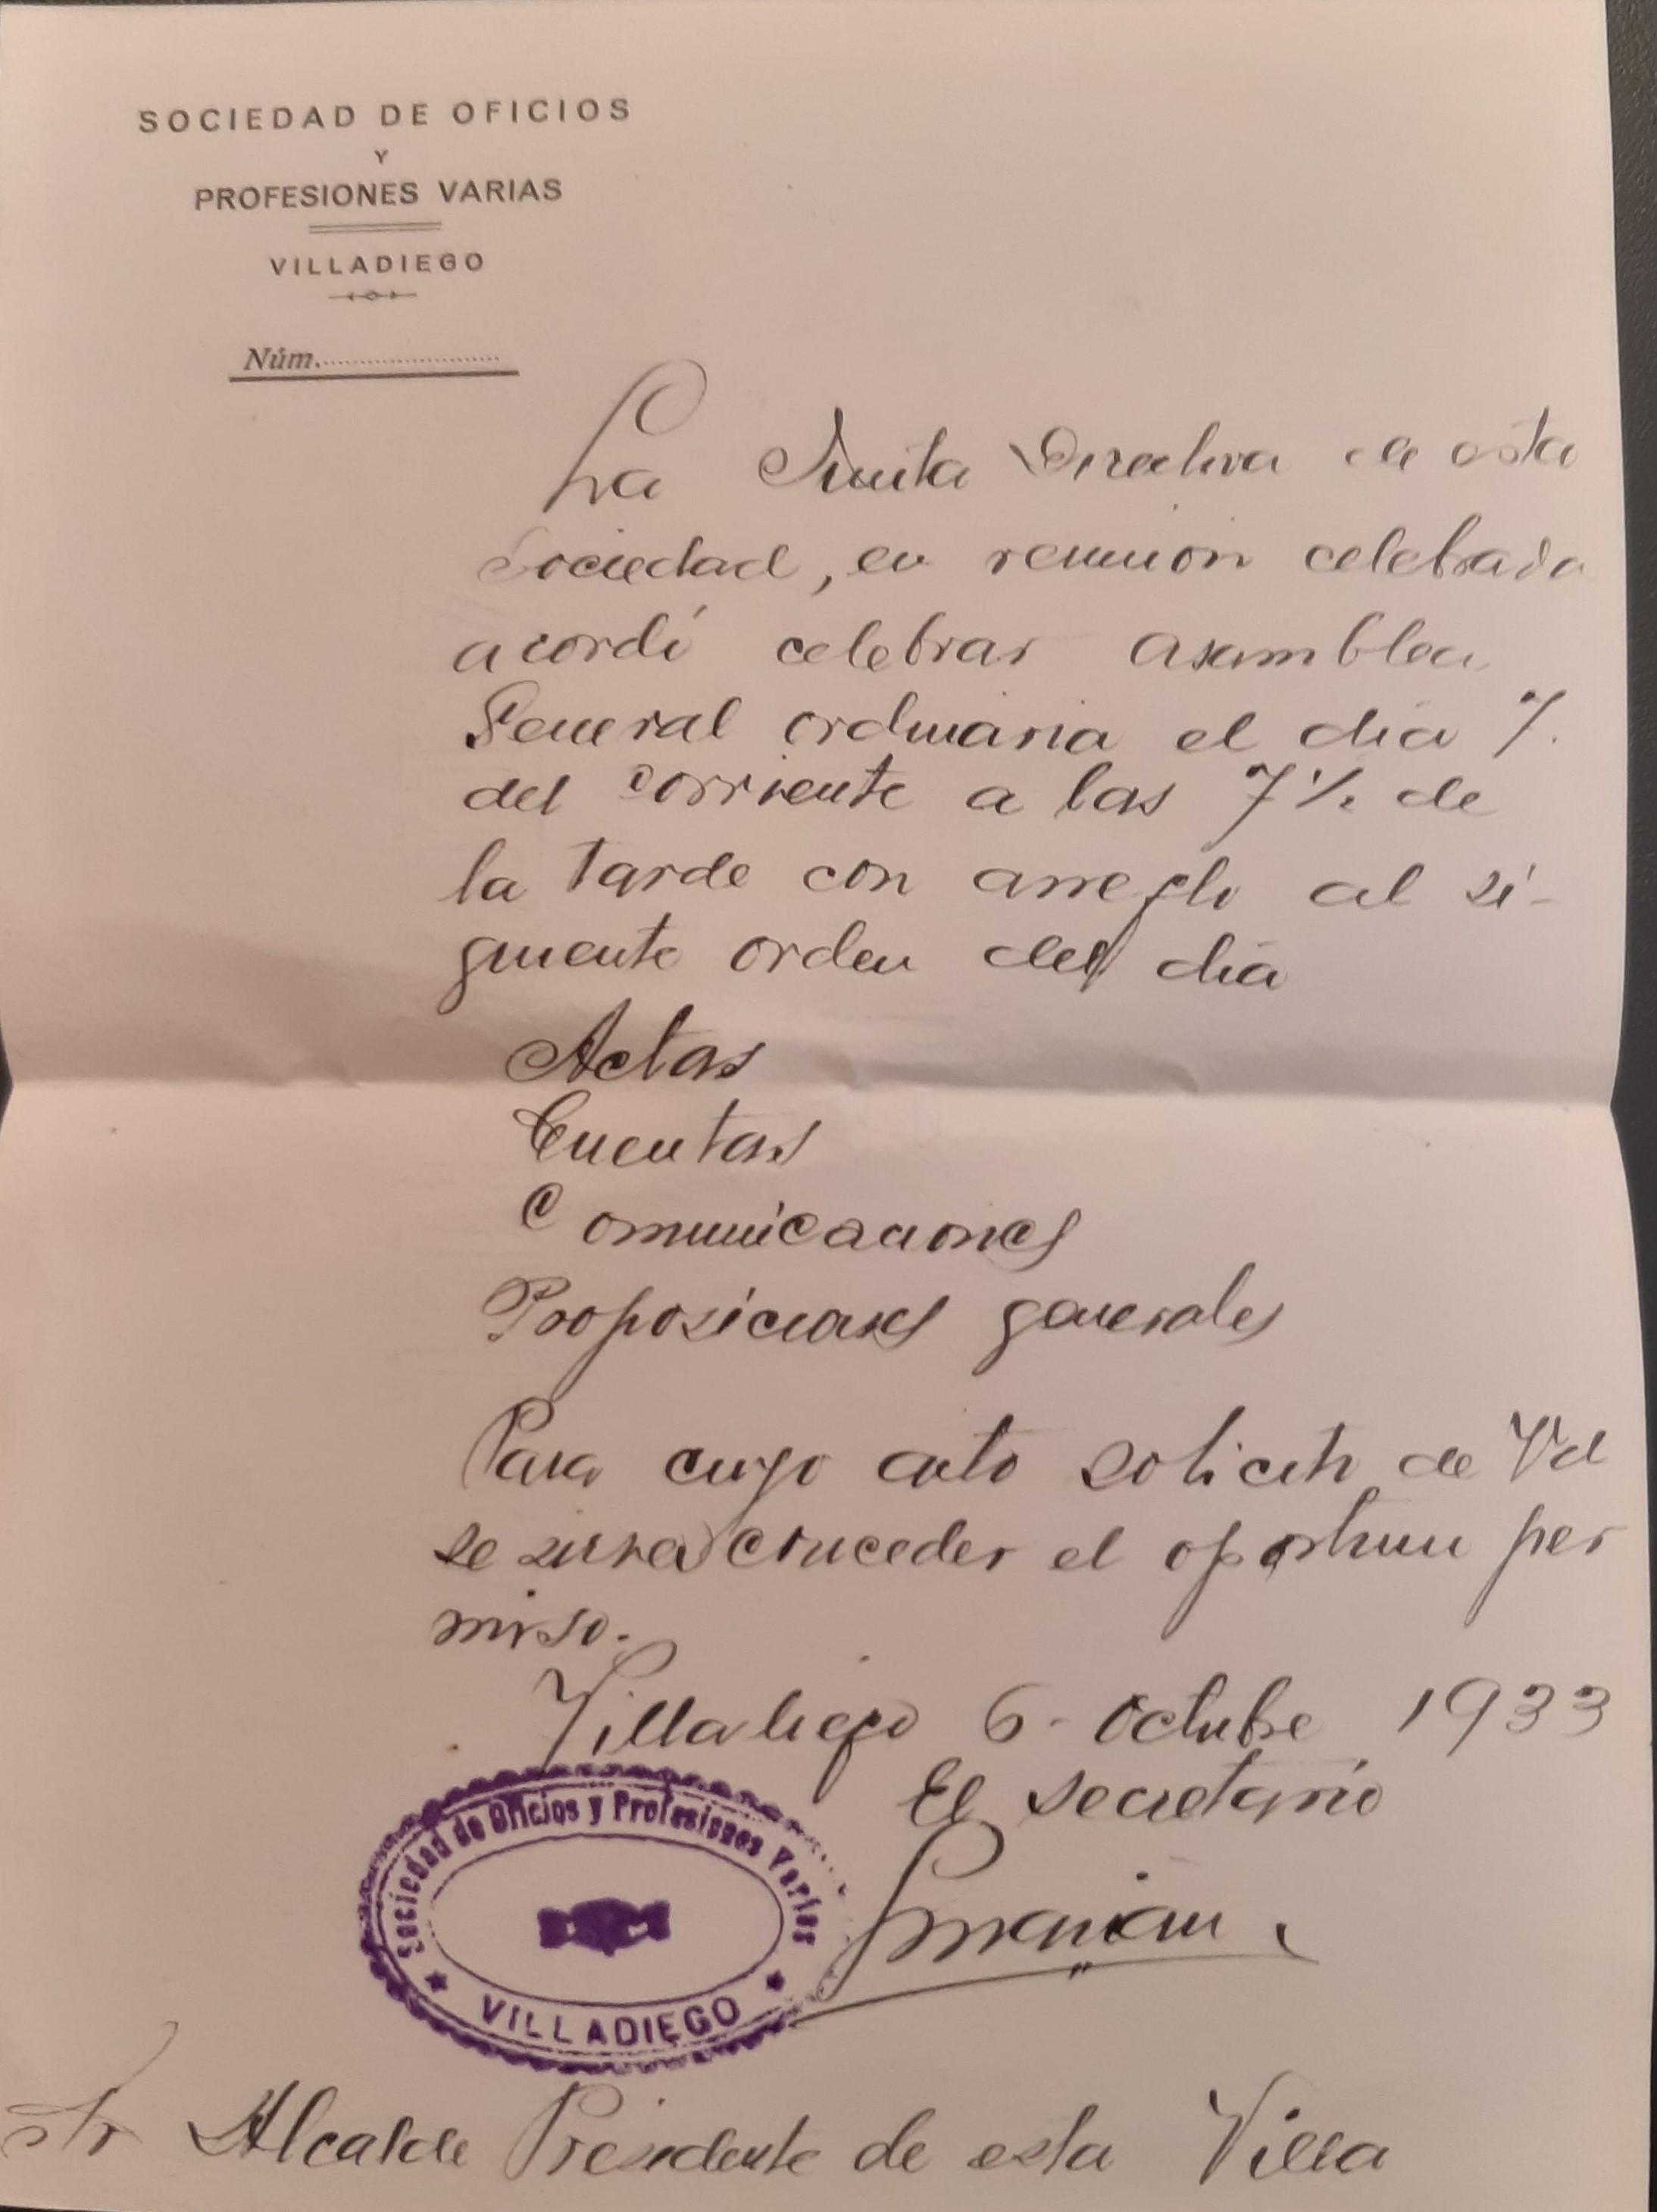 SOCIEDAD DE OFICIOS
Y
PROFESIONES VARIAS
VILLADIEGO
Núm.
La Junta Directiva de esta
Sociedad, en reunion celebrada
acordó celebrar asamblea
General ordinaria el dia 7.
del corriente a las 7 ½ de
la tarde con arreglo al si-
guiente orden del dia
Actas
Cuentas
Comunicaciones
Proposiciones generales
Para cuyo acto solicito de Vd
se sirva conceder el oportuno per
miso.
Villadiego 6 - Octubre 1933
El secretario
Sociedad de Oficios y Profesiones Varias
VILLADIEGO
Sr Alcalde Presidente de esta Villa